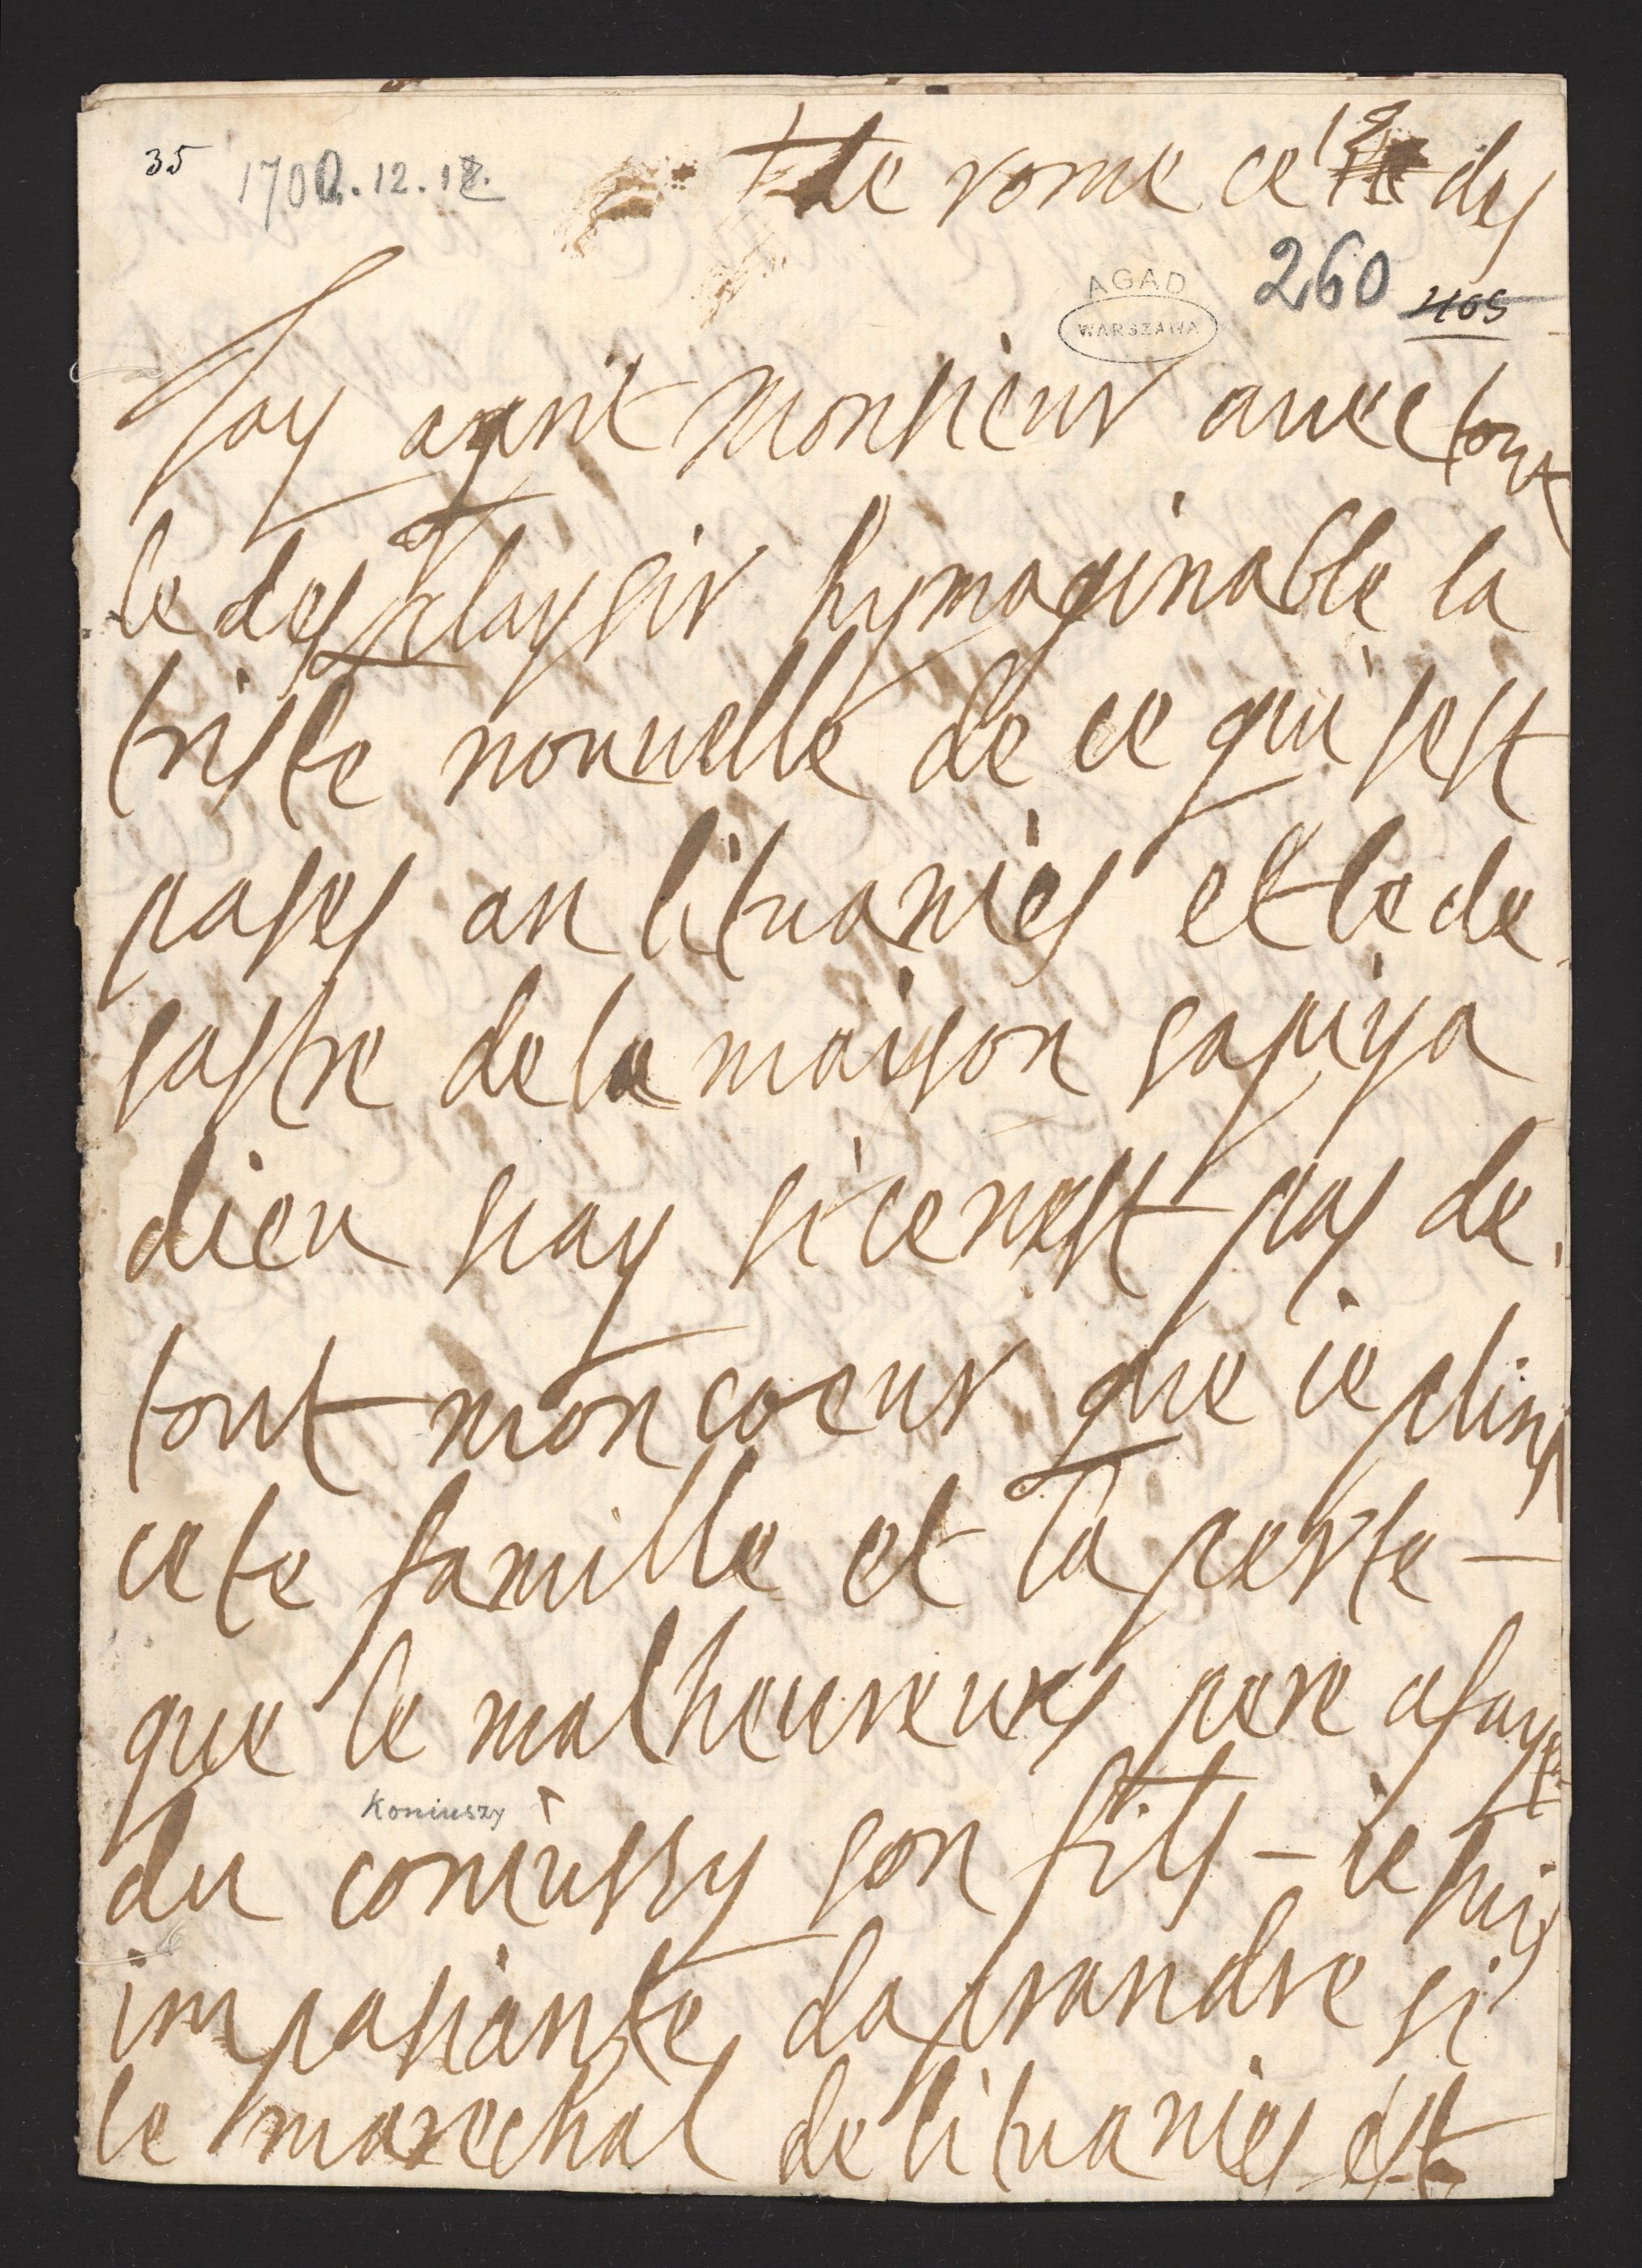 35 1700.12.18.
de rome ce 18 des
AGAD
WARSZAWA
260 405
Jay aprit Monsieur auec tout
le desplaysir hymaginable la
triste nouuelle de ce qui sest
pases an lituanies et le de
sastre de la maison sapiya
dieu scay si ce nest pas de
tout mon coeur que ie plins
cete famille et la perte –
que le malheureuxs pere a fayte
Koniuszy
du coniussy son fils – ie suis
impasiante daprandre si
le marechal de lituanies est